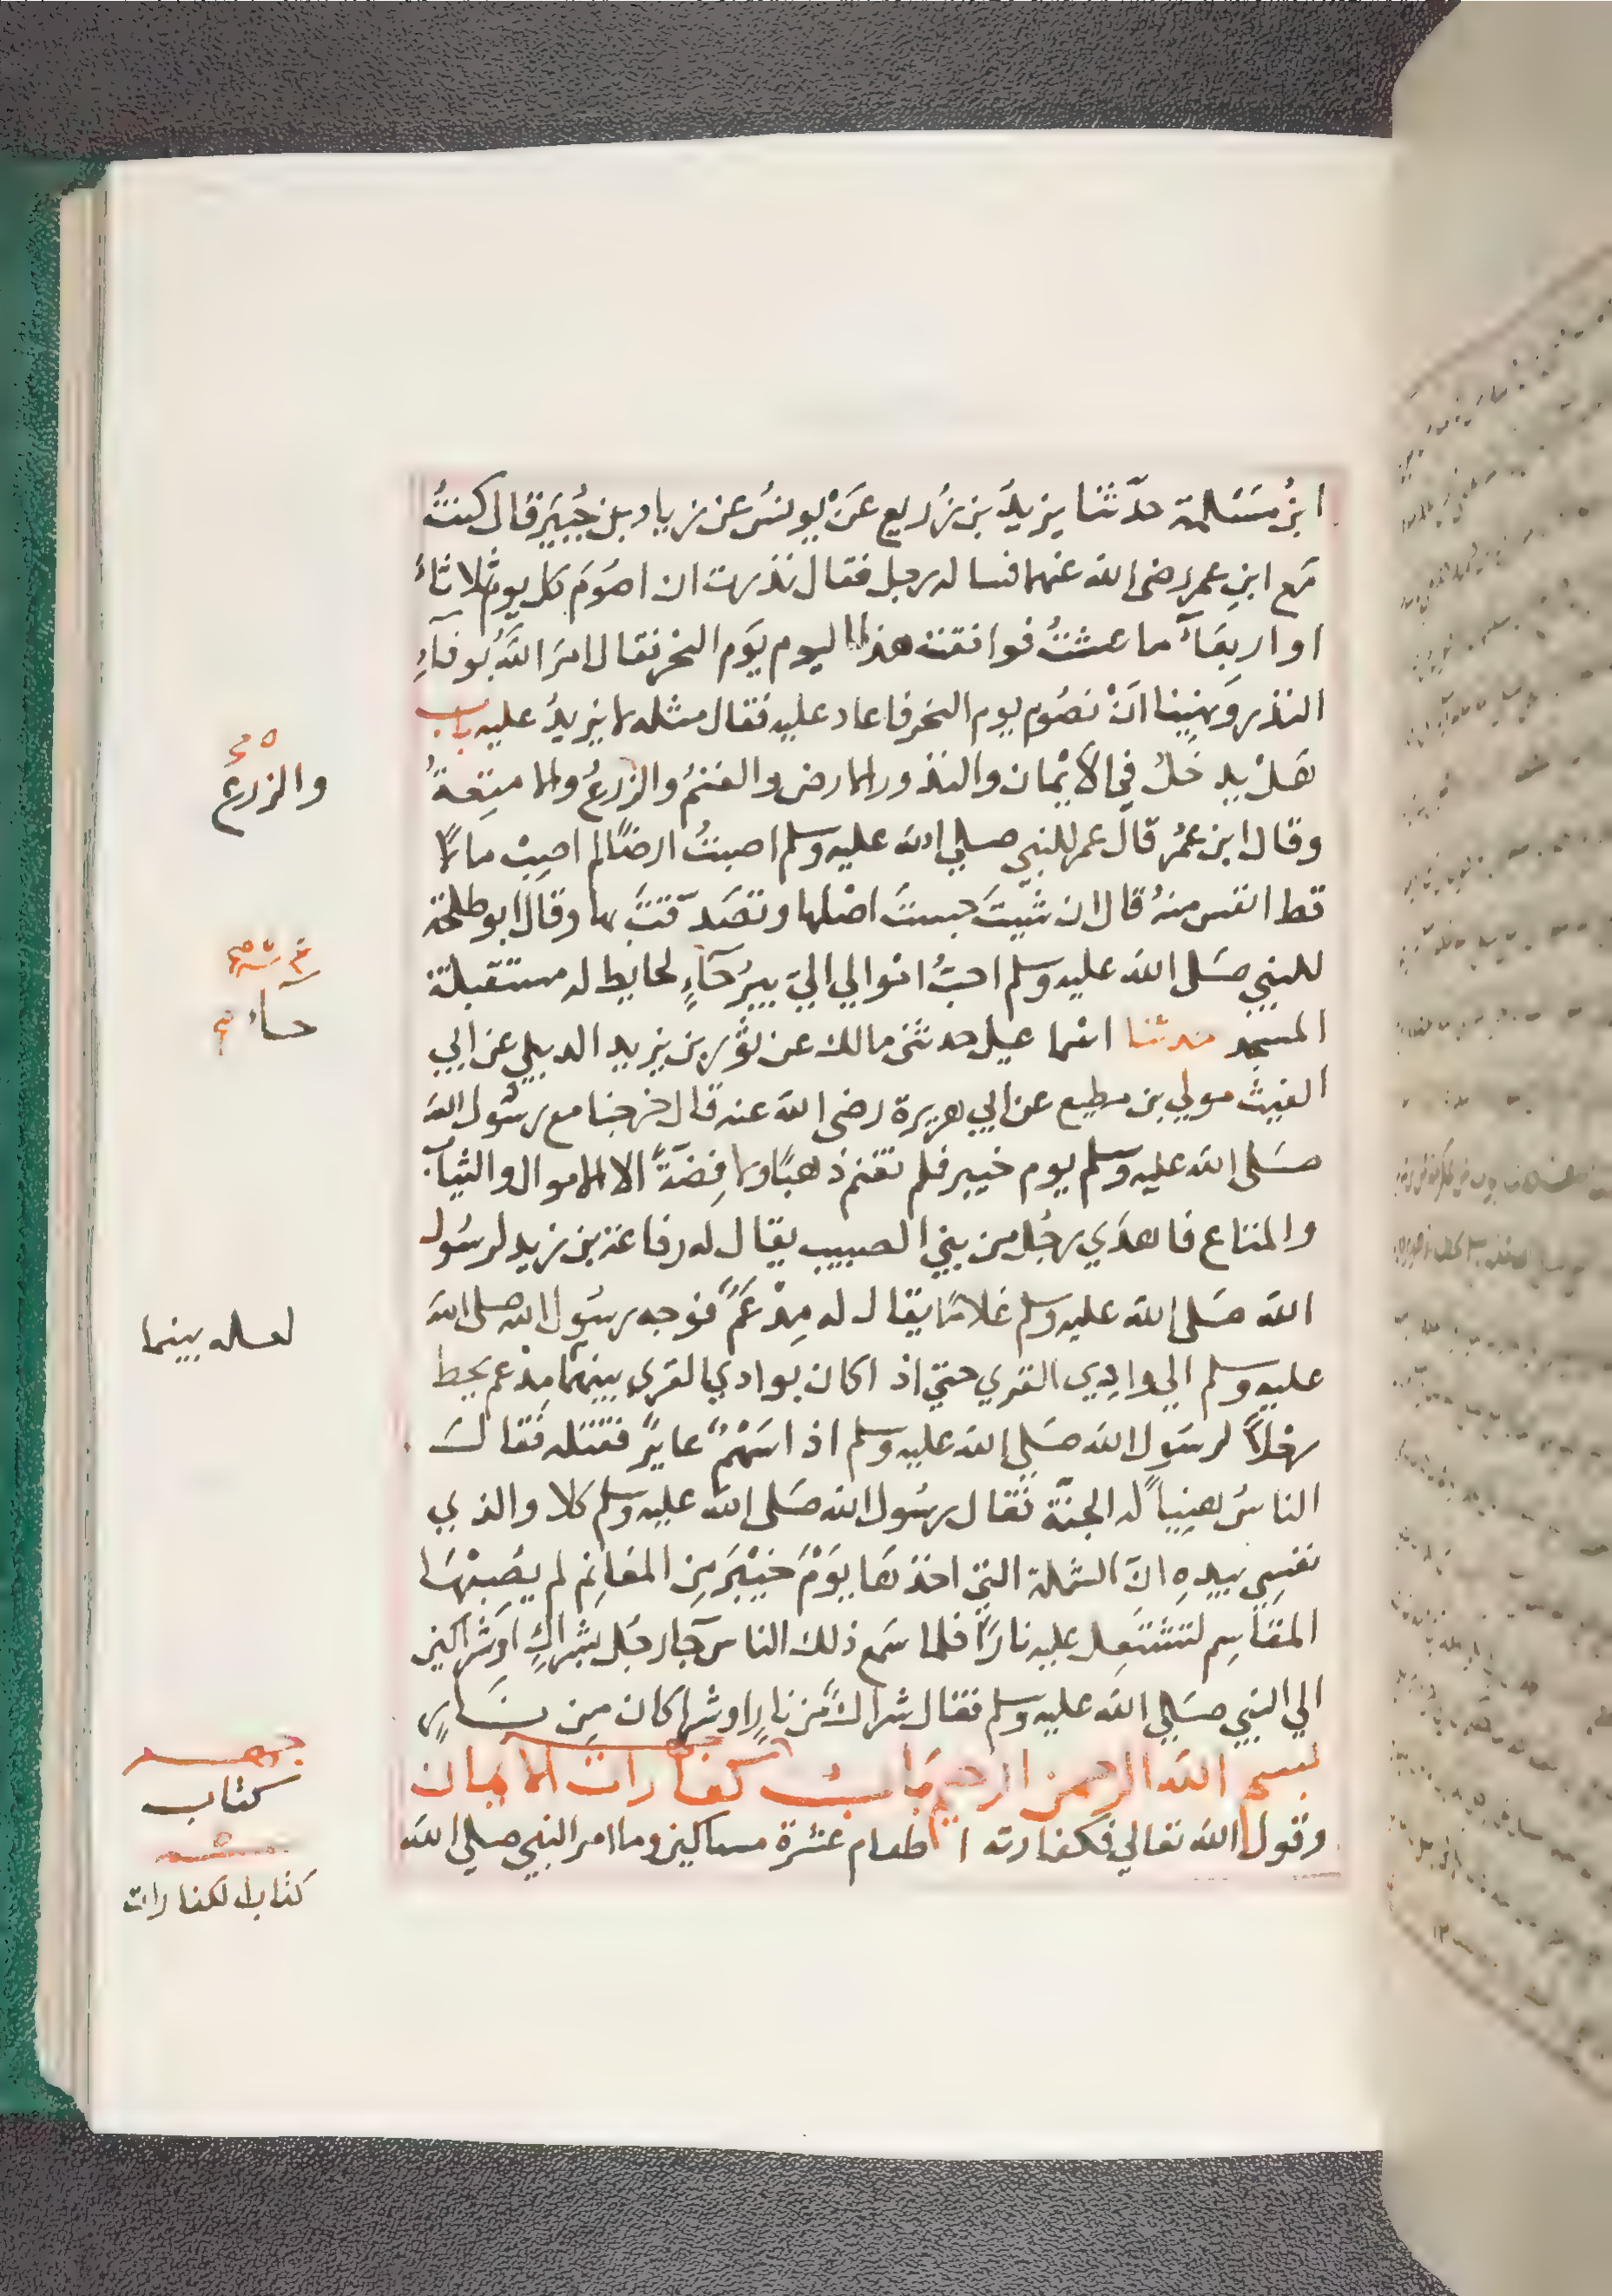 ابنُ مَسْلمة حدّثنا يزيدُ بن زُريع عَنْ يونسُ عن زياد بن جُبَيَر قال كنتُ
مَع ابنِ عمر رضى الله عنهما فساله رجل فقال نذرت ان اصُومَ كل يوم ثلاثاءَ
او اربعَآءَ ما عشتُ فوافقت هذا اليوم يَوم النحر فقال امرَ اللهُ بوفآءِ
النذر وَنهينا انْ نصُوم يوم النحر فاعاد عليه فقال مثله لا يزيدُ عليه باب
هَلْ يدخلُ في الأيْمان والنذور الارض والغنمُ والزرعُ والامتِعةُ
وقال ابن عمُر قال عمر للنبي صلي الله عليه وسلم اصبتُ ارضًا لم اصِبْ مالًا
قط انفس منهُ قال ان شيتَ حبستَ اصْلها وتصَدّقتَ بها وقال ابو طلحة
للنبي صَلى الله عليه وسلم احبُّ اموالي اليّ بيرُحَآءٍ لحايط له مستقبلة
المسجد حدثنا اسْما عيل حدثنى مالك عن ثوْر بن يزيد الديلي عن ابي
الغيث مولي بن مطيع عن ابي هريرة رضى الله عنه قال خرجنا مع رسُول الله
صَلى الله عليه وسَلم يوم خيبر فلم نغنم ذهبًا ولا فِضّةً الا الاموال والثيابَ
والمتاع فاهدَي رجُل من بني الصبيب يقال له رفاعة بن زيد لرسُول
الله صَلى الله عليه وسلم غلامًا يقال له مِدْعَمٌ فوجه رسُول الله صلى الله
عليه وسلم الي وادِي القري حتي اذ اكان بوادي القري بينهَما مِدْعم يحط
رحْلاً لرسَول الله صَلى الله عليه وسلم اذ اسَهْمٌ عايرٌ فقتله فقال
الناسُ هنِياً له الجنّة فقال رسُول الله صَلى الله عليه وسلم كلا والذي
نفسِي بيدهِ انَّ الشملة التي اخذها يَوْمَ خَيْبَرَ مِن المغانِم لم يُصِبْهَا
المقاسِم لتشتعِل عليه نارًا فلما سَمع ذلك الناس جَآ رجَل بشراكٍ اوشراكين
الي النبي صَلي الله عليه وسلم فقال شراكٌ من نارٍ او شراكان مِن نَارٍ
بسم الله الرحمن الرحيم بَابُ كفارات الايمان
وقول الله تعالي فكفارته اطعام عشرة مساكين وما امر النبي صلي الله
والزرعُ
حاءَ
لعله بينما
كتاب
كتاب الكفارات